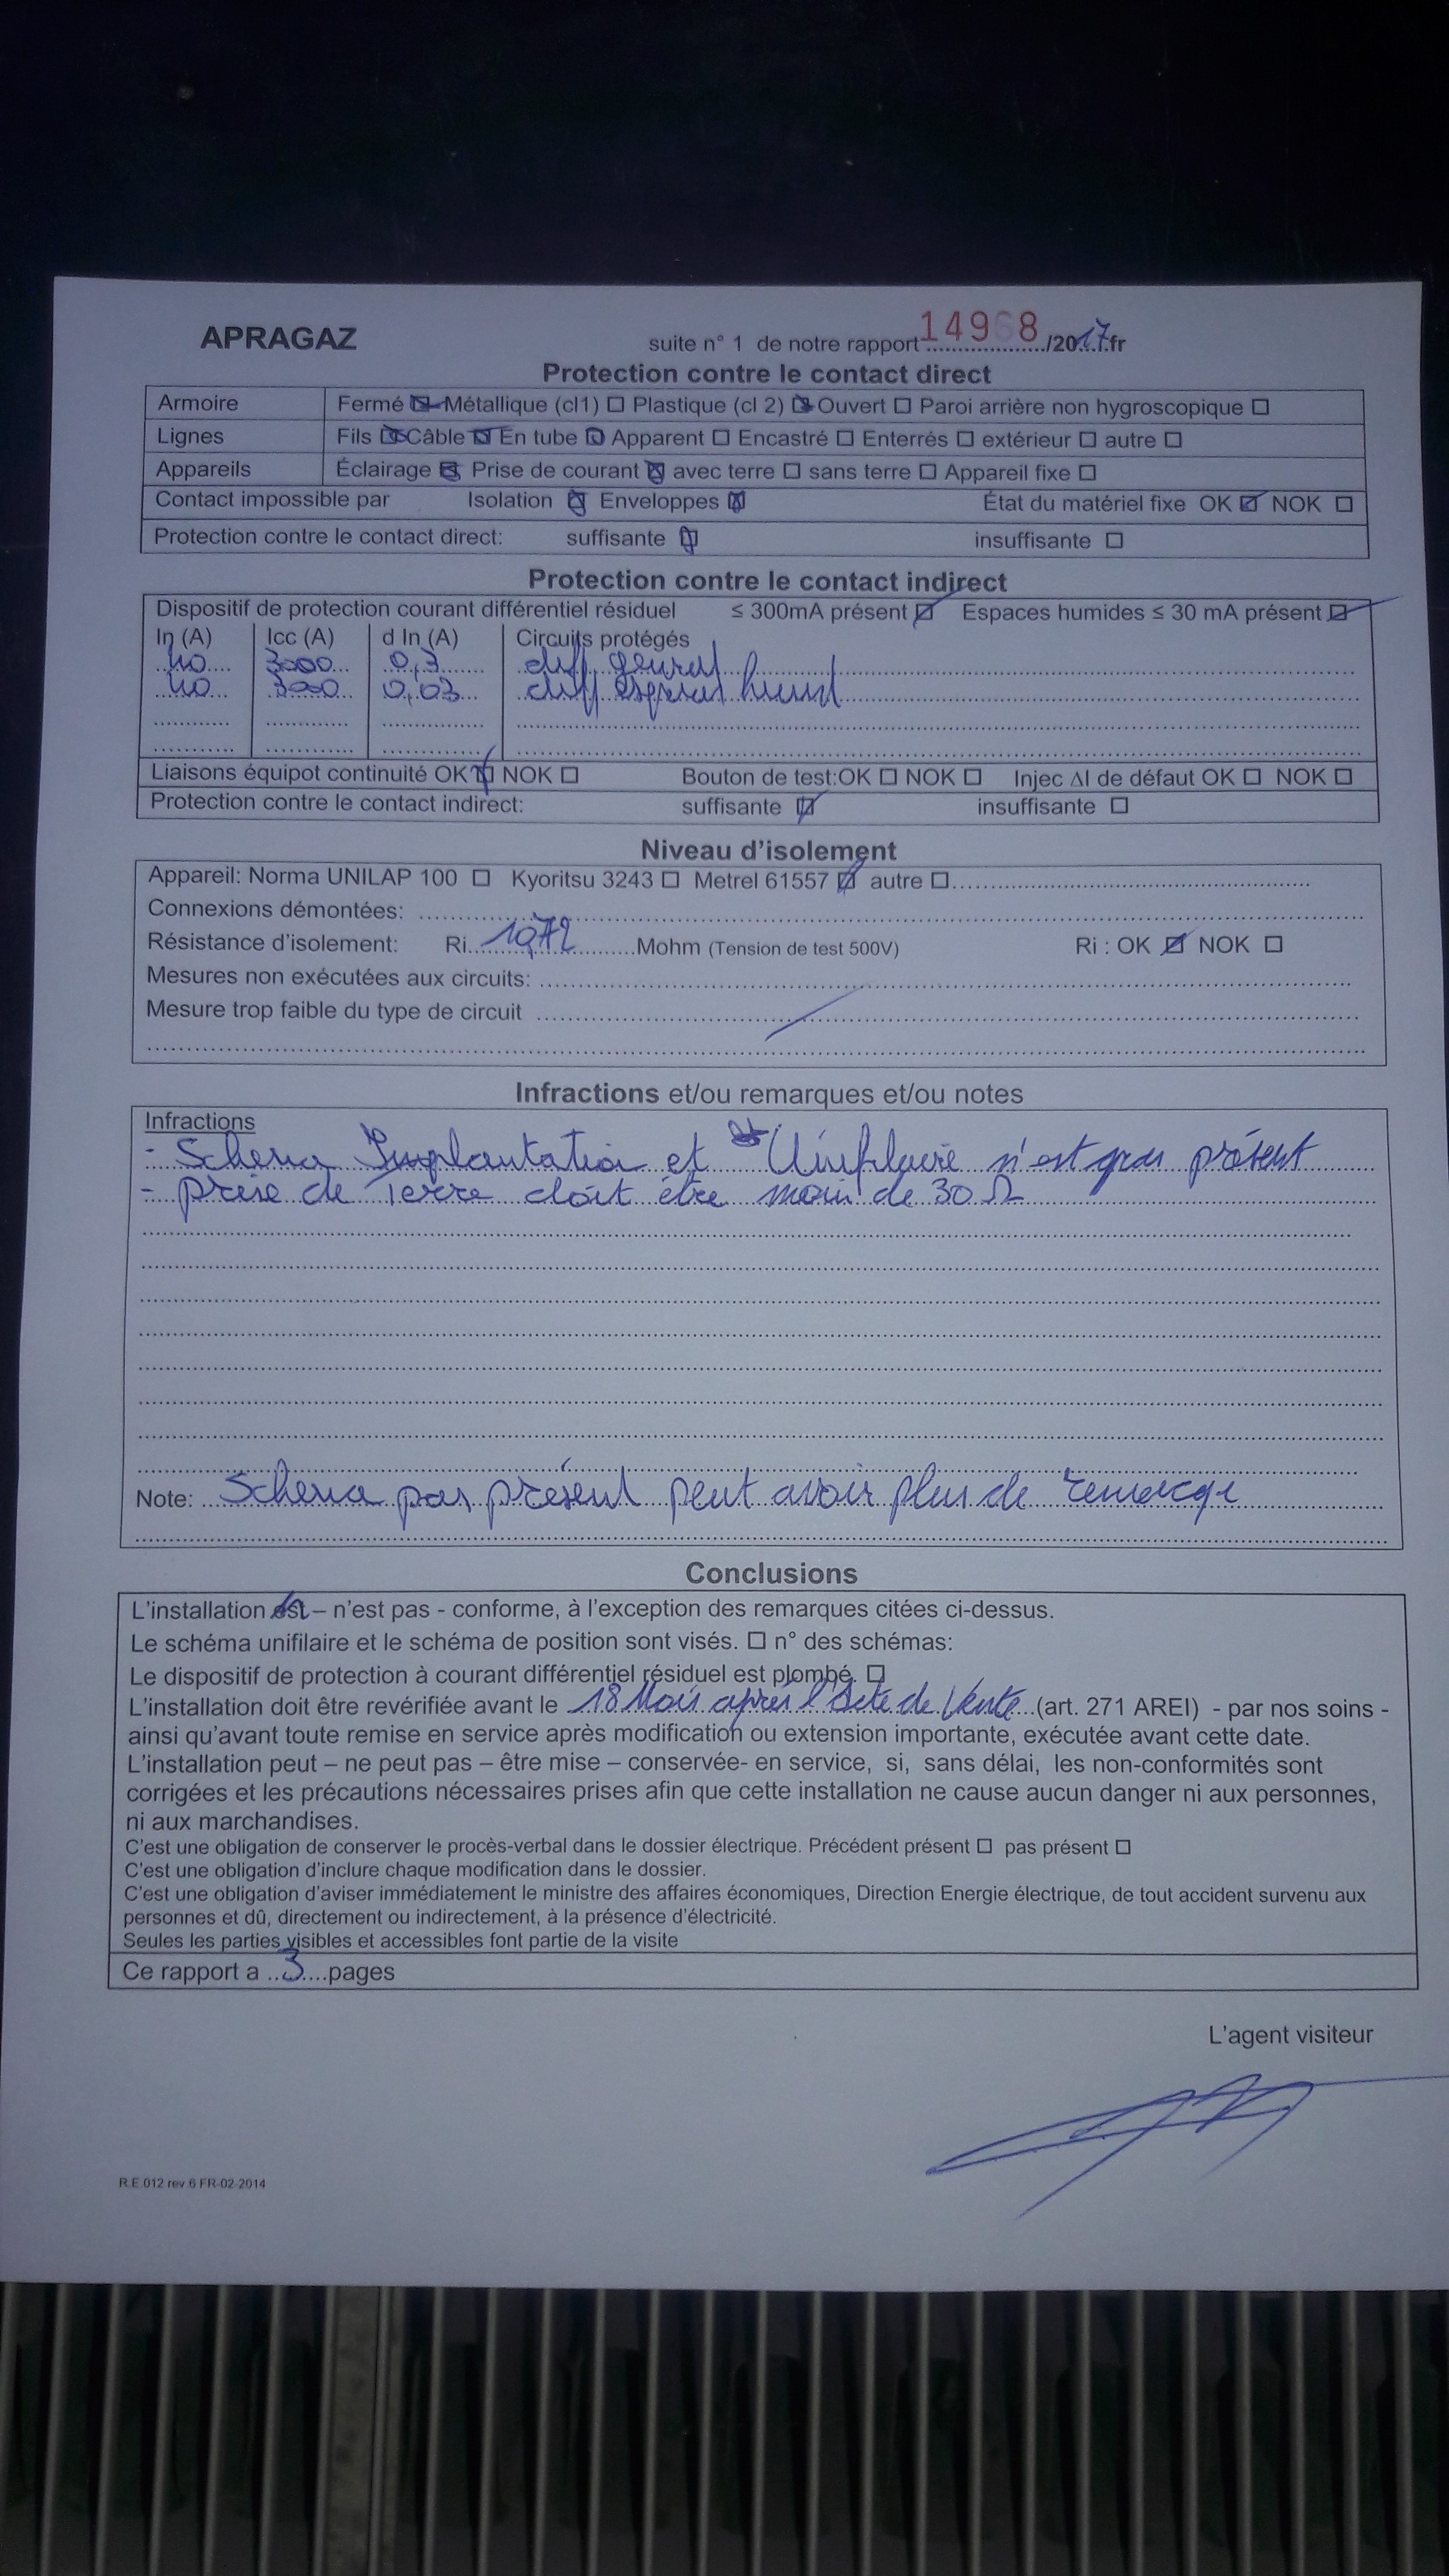 APRAGAZ
suite n° 1 de notre rapport 14968/2017.fr
Protection contre le contact direct
Armoire Fermé ☒ Métallique (cl1) ☐ Plastique (cl 2) ☒ Ouvert ☐ Paroi arrière non hygroscopique ☐
Lignes Fils ☒ Câble ☒ En tube ☒ Apparent ☐ Encastré ☐ Enterrés ☐ extérieur ☐ autre ☐
Appareils Éclairage ☒ Prise de courant ☒ avec terre ☐ sans terre ☐ Appareil fixe ☐
Contact impossible par Isolation ☒ Enveloppes ☒ État du matériel fixe OK ☒ NOK ☐
Protection contre le contact direct: suffisante ☒ insuffisante ☐
Protection contre le contact indirect
Dispositif de protection courant différentiel résiduel ≤ 300mA présent ☒ Espaces humides ≤ 30 mA présent ☒
In (A) Icc (A) d In (A) Circuits protégés
40 3000 0,3 diff general
40 3000 0,03 diff humid
Liaisons équipot continuité OK ☒ NOK ☐ Bouton de test:OK ☐ NOK ☐ Injec ΔI de défaut OK ☐ NOK ☐
Protection contre le contact indirect: suffisante ☒ insuffisante ☐
Niveau d'isolement
Appareil: Norma UNILAP 100 ☐ Kyoritsu 3243 ☐ Metrel 61557 ☒ autre ☐
Connexions démontées:
Résistance d'isolement: Ri Mohm (Tension de test 500V) Ri : OK ☒ NOK ☐
Mesures non exécutées aux circuits:
Mesure trop faible du type de circuit
Infractions et/ou remarques et/ou notes
Infractions
- Schema Implantation et Unifilaire n'est pas présent
- prise de Terre doit être moin de 30 Ω
Note: Schema pas présent peut avoir plus de remarqe
Conclusions
L'installation est – n'est pas - conforme, à l'exception des remarques citées ci-dessus.
Le schéma unifilaire et le schéma de position sont visés. ☐ n° des schémas:
Le dispositif de protection à courant différentiel résiduel est plombé. ☐
L'installation doit être revérifiée avant le 18 Mois après l'Acte de Vente (art. 271 AREI) - par nos soins -
ainsi qu'avant toute remise en service après modification ou extension importante, exécutée avant cette date.
L'installation peut – ne peut pas – être mise – conservée- en service, si, sans délai, les non-conformités sont
corrigées et les précautions nécessaires prises afin que cette installation ne cause aucun danger ni aux personnes,
ni aux marchandises.
C'est une obligation de conserver le procès-verbal dans le dossier électrique. Précédent présent ☐ pas présent ☐
C'est une obligation d'inclure chaque modification dans le dossier.
C'est une obligation d'aviser immédiatement le ministre des affaires économiques, Direction Energie électrique, de tout accident survenu aux
personnes et dû, directement ou indirectement, à la présence d'électricité.
Seules les parties visibles et accessibles font partie de la visite
Ce rapport a 3 pages
L'agent visiteur
R.E 012 rev.6 FR-02-2014